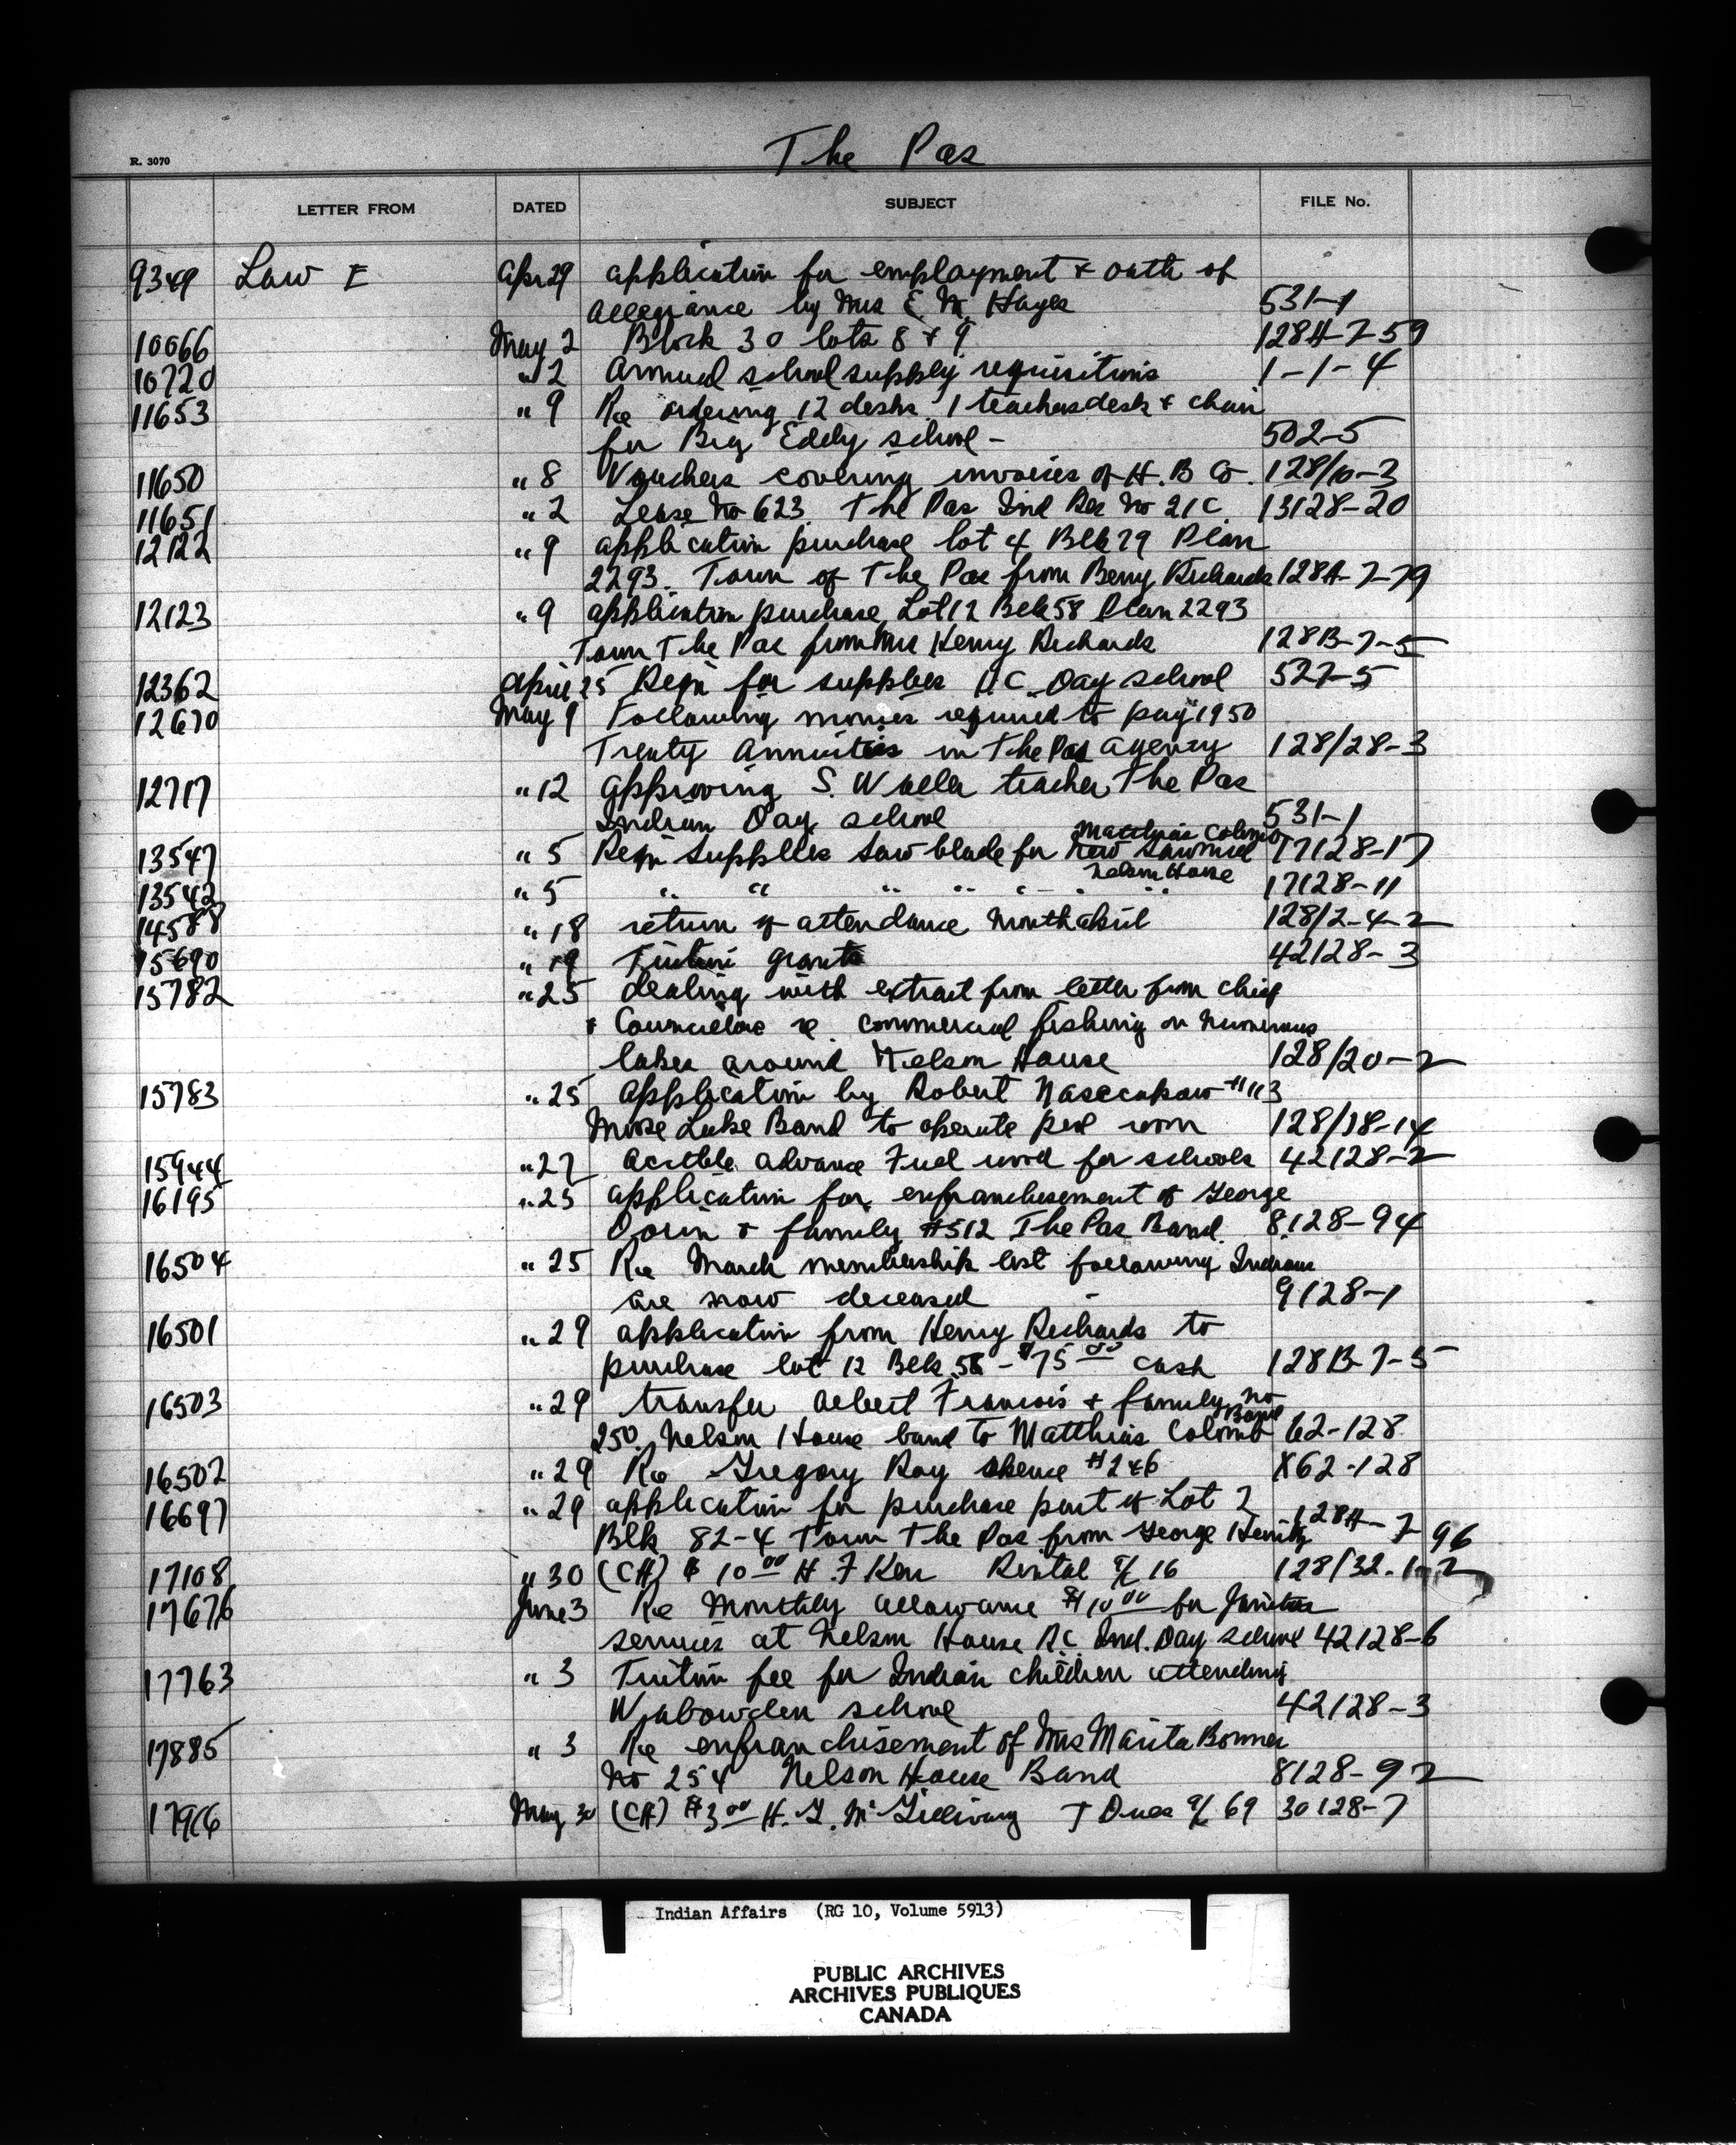 The Pas
R. 3070
LETTER FROM DATED SUBJECT FILE No.
9349 Law E Apr 29 application for employment & oath of
allegiance by Mrs E. M. Hayes 531-1
10066 May 2 Block 30 lots 8 & 9 128A-7-59
10720 " 2 Annual school supply requisitions 1-1-4
11653 " 9 Re ordering 12 desks 1 teachers desk & chair
for Big Eddy school - 502-5
11650 " 8 Vouchers covering invoices of H. B Co. 128/10-3
11651 " 2 Lease No 623 The Pas Ind Res No 21C 13128-20
12122 " 9 application purchase lot 4 Blk 79 Plan
2293. Town of The Pas from Berry Richards 128A-7-79
12123 " 9 application purchase Lot 12 Blk 58 Plan 2293
Town The Pas from Mrs Henry Richards 128B-7-5
12362 April 25 Reqn for supplies Day school 527-5
12670 May 9 Following monies required to pay 1950
Treaty Annuities in The Pas Agency 128/28-3
12717 " 12 Approving S. Waller teacher The Pas
Indian Day school 531-1
Matthias Colomb
13547 " 5 Reqn supplies saw blade for new sawmill 17128-17
Nelson House
13542 " 5 " " " " " " " 17128-11
14588 " 18 return of attendance month April 128/2-4-2
15690 " 19 Tuition grants 42128-3
15782 " 25 dealing with extract from letter from chief
& Councillors re commercial fishing on numerous
lakes around Nelson House 128/20-2
15783 " 25 Application by Robert #113
Moose Lake Band to operate pool room 128/18-14
15944 " 27 advance Fuel wood for schools 42128-2
16195 " 25 application for enfranchisement of George
& family #512 The Pas Band. 8128-94
16504 " 25 Re March membership list following Indians
are now deceased - 9128-1
16501 " 29 application from Henry Richards to
purchase lot 12 Blk 58 - $75 00 cash 128B-7-5
16503 " 29 transfer Albert Francois & family no
Band
250 Nelson House band to Matthias Colomb 62-128
16502 " 29 Re Gregory Ray #246 X62-128
16697 " 29 application for purchase part of Lot 2
Blk 82-4 Town The Pas from George 128A-7-96
17108 " 30 (CH) $10 00 H. F Kerr Rental a/c 16 128/32.1-2
17676 June 3 Re Monthly allowance $10 00 for Janitor
services at Nelson House RC Ind. Day school 42128-6
17763 " 3 Tuition fee for Indian children attending
Wabowden school 42128-3
17885 " 3 Re enfranchisement of Mrs Marita Bonner
No 254 Nelson House Band 8128-92
17916 May 30 (CH) $3 00 H. G. McGillivary T Dues a/c 69 30128-7
Indian Affairs (RG 10, Volume 5913)
PUBLIC ARCHIVES
ARCHIVES PUBLIQUES
CANADA